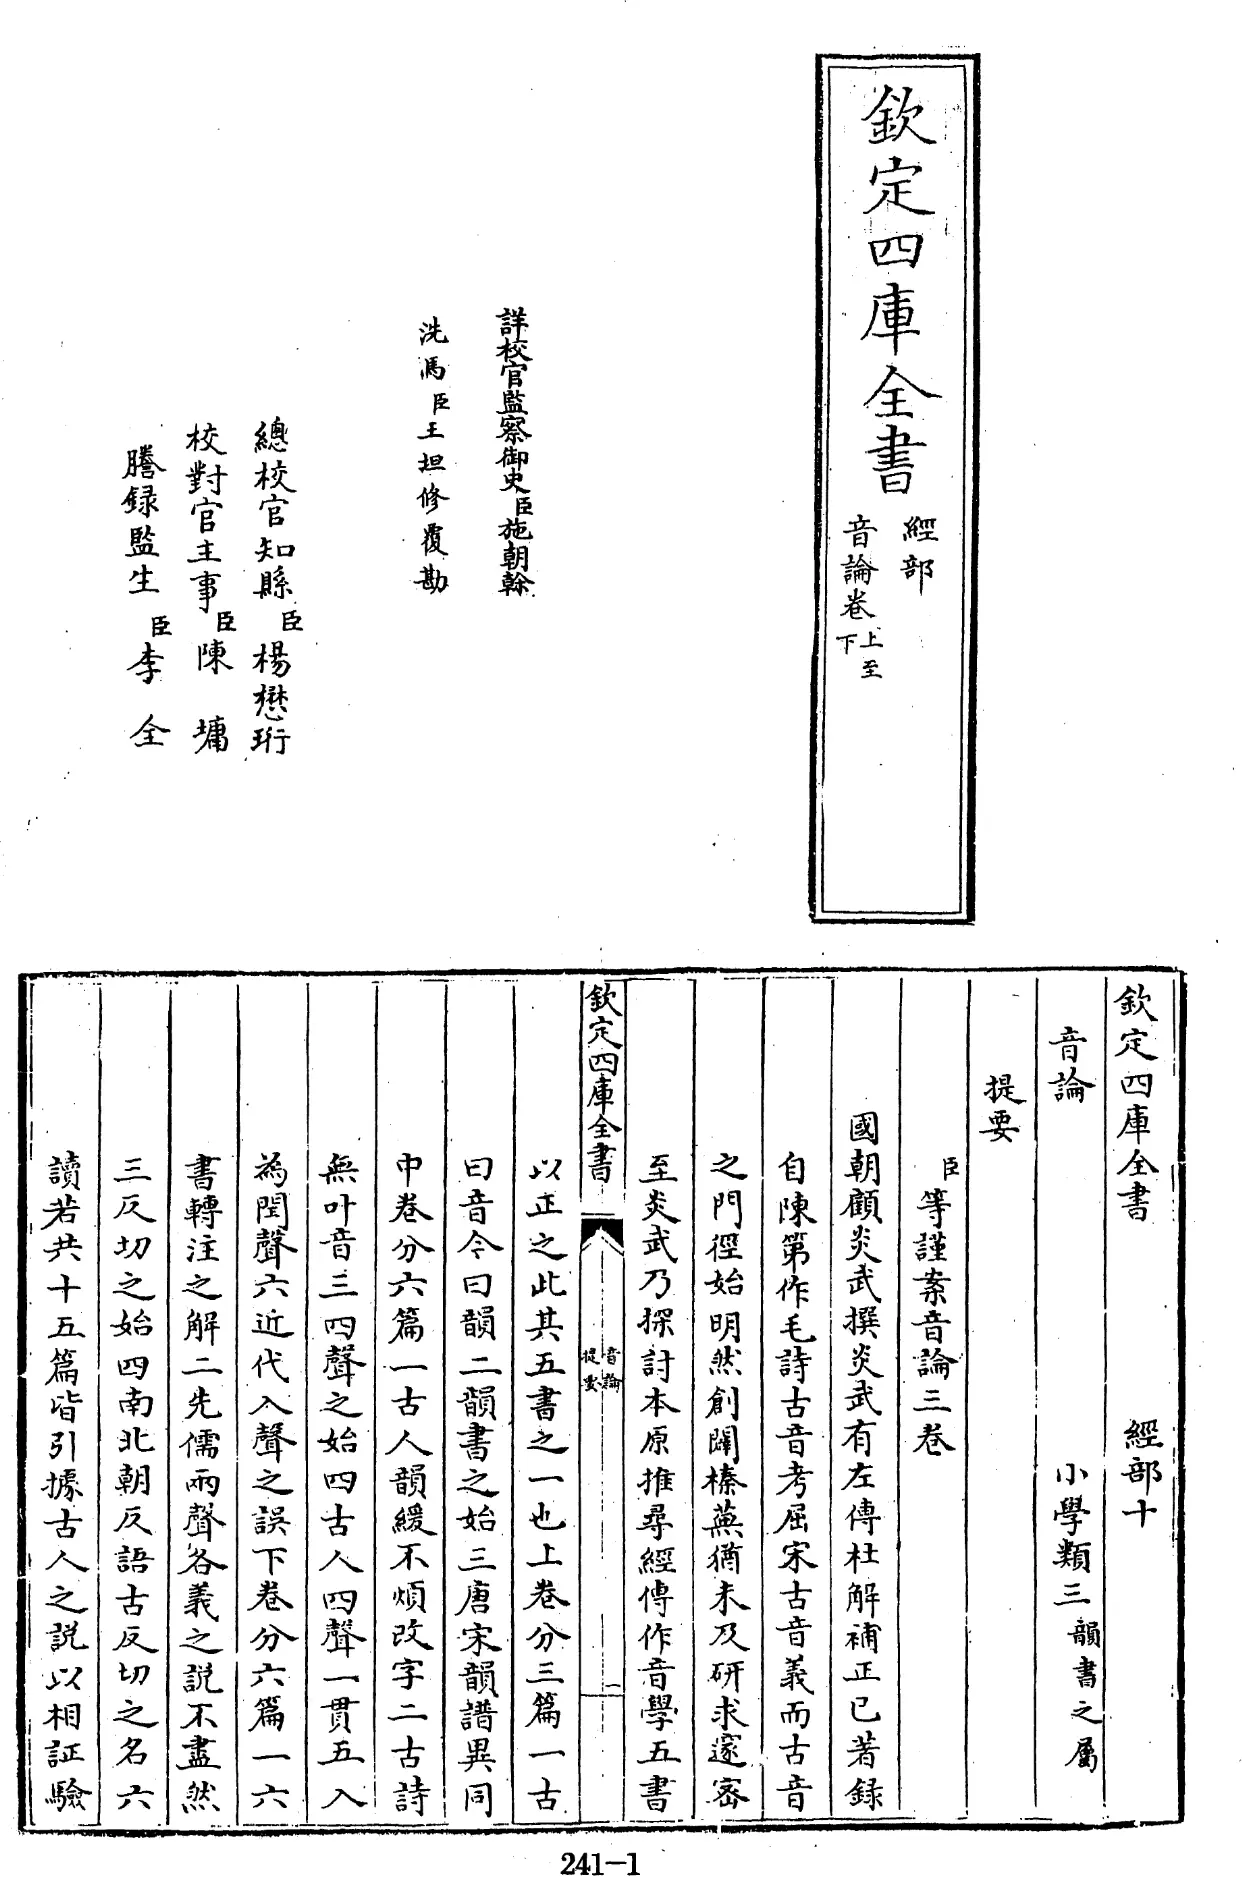 欽定四庫全書
經部
音論卷上至下
詳校官監察御史臣施朝幹
洗馬臣王坦修覆勘
總校官知縣臣楊懋珩
校對官主事臣陳墉
謄録監生臣李全
欽定四庫全書 經部十
音論 小學類三韻書之屬
提要
臣等謹案音論三卷
國朝顧炎武撰炎武有左傳杜解補正已著録
自陳第作毛詩古音考屈宋古音義而古音
之門徑始明然創闢榛蕪猶未及研求邃密
至炎武乃探討本原推尋經傳作音學五書
欽定四庫全書
音論
提要
一
以正之此其五書之一也上卷分三篇一古
曰音今曰韻二韻書之始三唐宋韻譜異同
中卷分六篇一古人韻緩不煩改字二古詩
無叶音三四聲之始四古人四聲一貫五入
為閏聲六近代入聲之誤下卷分六篇一六
書轉注之解二先儒兩聲各義之説不盡然
三反切之始四南北朝反語古反切之名六
讀若共十五篇皆引據古人之説以相証驗
241-1